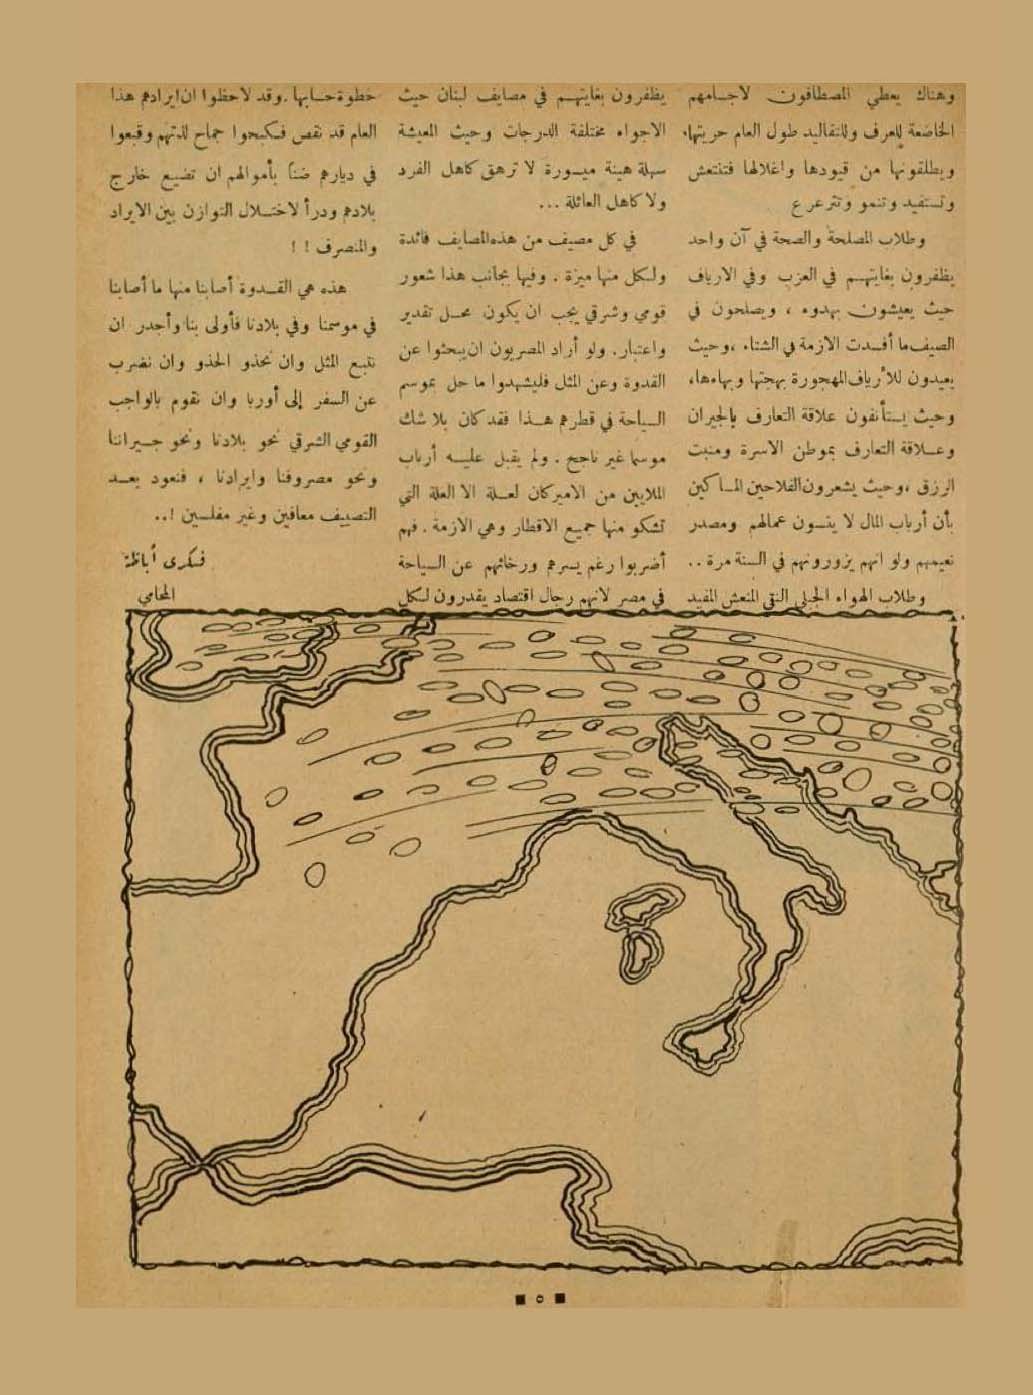 وهناك يعطي المصطافون لاجسامهم
الخاضعة للعرف وللتقاليد طول العام حريتها،
ويطلقونها من قيودها واغلالها فتنتعش
وتستفيد وتنمو وتترعرع
وطلاب المصلحة والصحة في آن واحد
يظفرون بغايتهم في العزب وفي الارياف
حيث يعيشون بهدوء ، ويصلحون في
الصيف ما أفسدت الازمة في الشتاء ، وحيث
يعيدون للأرياف المهجورة بهجتها وبهاءها،
وحيث يستأنفون علاقة التعارف بالجيران
وعلاقة التعارف بموطن الاسرة ومنبت
الرزق ، وحيث يشعرون الفلاحين المساكين
بأن أرباب المال لا ينسون عمالهم ومصدر
نعيمهم ولو انهم يزورونهم في السنة مرة ..
وطلاب الهواء الجبلي النقي المنعش المفيد
يظفرون بغايتهم في مصايف لبنان حيث
الاجواء مختلفة الدرجات وحيث المعيشة
سهلة هينة ميسورة لا ترهق كاهل الفرد
ولا كاهل العائلة ...
في كل مصيف من هذه المصايف فائدة
ولكل منها ميزة . وفيها بجانب هذا شعور
قومي وشرقي يجب ان يكون محل تقدير
واعتبار. ولو أراد المصريون ان يبحثوا عن
القدوة وعن المثل فليشهدوا ما حل بموسم
السياحة في قطرهم هذا فقد كان بلا شك
موسما غير ناجح . ولم يقبل عليه أرباب
الملايين من الاميركان لعلة الا العلة التي
تشكو منها جميع الاقطار وهي الازمة . فهم
أضربوا رغم يسرهم ورخائهم عن السياحة
في مصر لانهم رجال اقتصاد يقدرون لكل
خطوة حسابها . وقد لاحظوا ان ايرادهم هذا
العام قد نقص فكبحوا جماح لذتهم وقبعوا
في ديارهم ضناً بأموالهم ان تضيع خارج
بلادهم ودرأ لاختلال التوازن بين الايراد
والمنصرف ! !
هذه هي القدوة أصابنا منها ما أصابنا
في موسمنا وفي بلادنا فأولى بنا وأجدر ان
نتبع المثل وان نحذو الحذو وان نضرب
عن السفر إلى أوربا وان نقوم بالواجب
القومي الشرقي نحو بلادنا ونحو جيراننا
ونحو مصروفنا وايرادنا ، فنعود بعد
التصييف معافين وغير مفلسين !..
فكرى أباظة
المحامي
■ ٥ ■